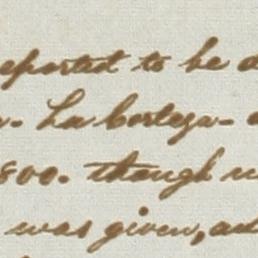 eported to be d
. La Corteza-
800. though
was given, ad